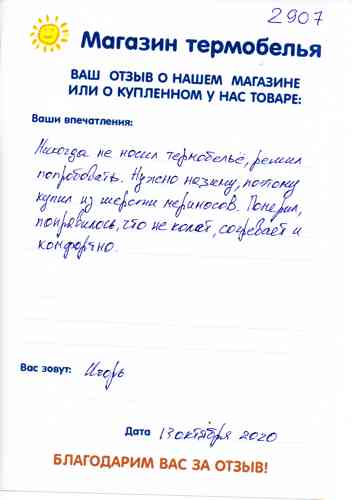 2907
Магазин термобелья
ВАШ ОТЗЫВ О НАШЕМ МАГАЗИНЕ
ИЛИ О КУПЛЕННОМ У НАС ТОВАРЕ:
Ваши впечатления:
Никогда не носил термобельё, решил
попробовать. Нужно на зиму, поэтому
купил из шерсти мериносов. Померил,
понравилось, что не колет, согревает и
комфортно.
Вас зовут: Игорь
Дата 13 октября 2020
БЛАГОДАРИМ ВАС ЗА ОТЗЫВ!